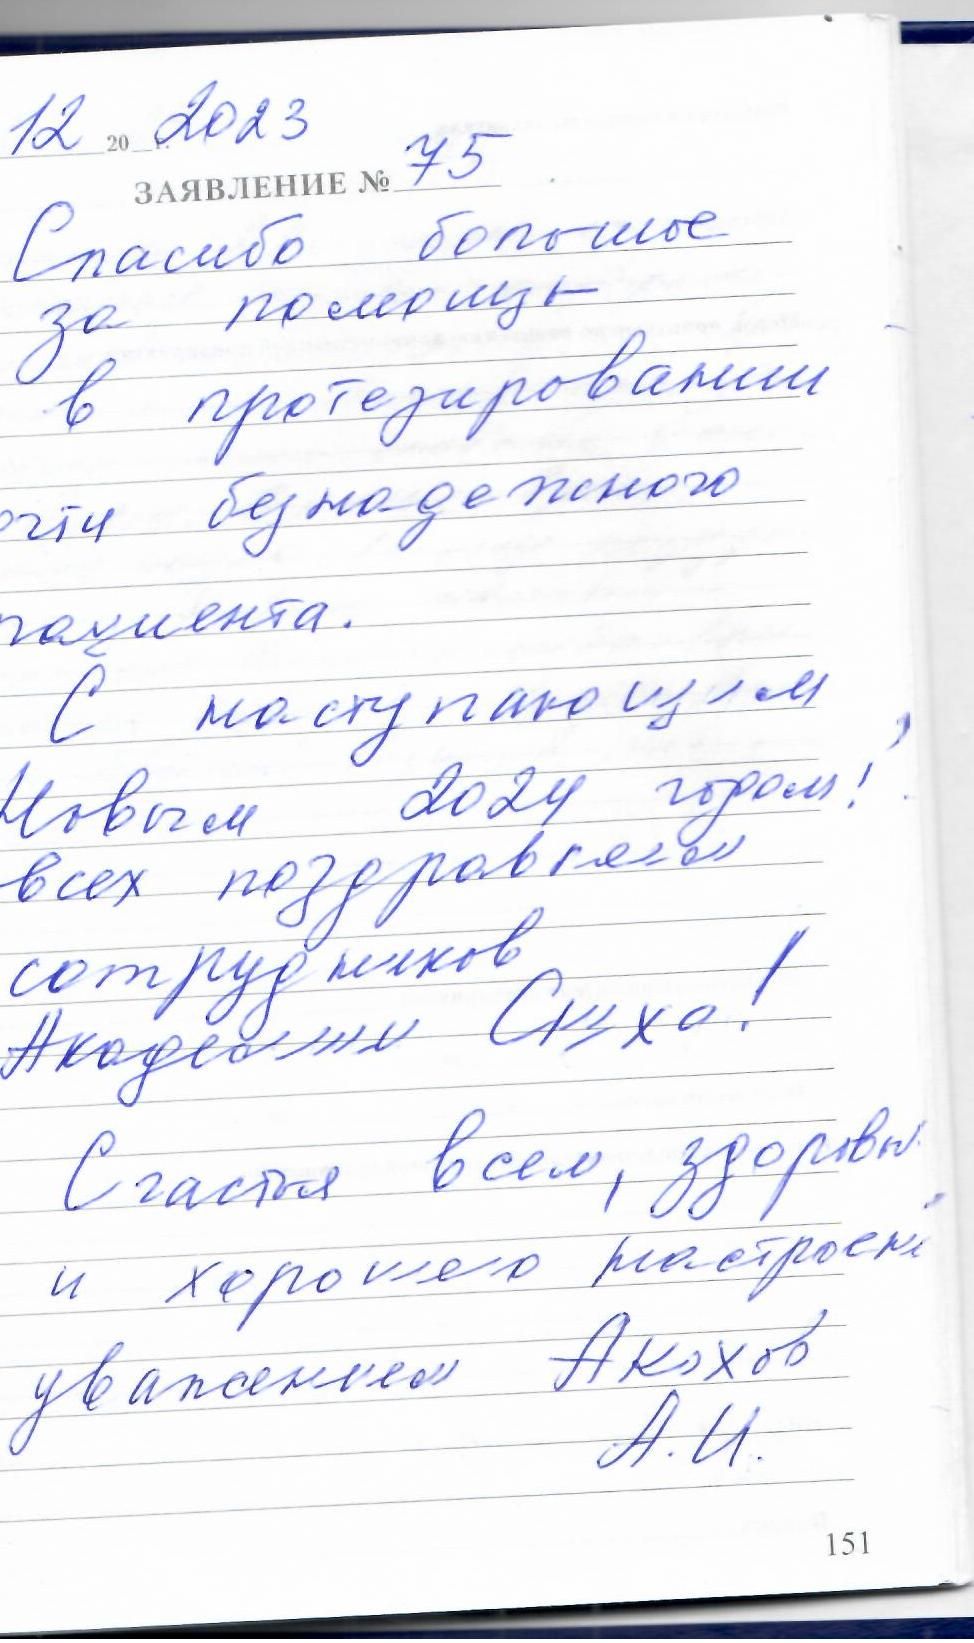 12 20 2023
ЗАЯВЛЕНИЕ № 75
Спасибо большое
за помощь
в протезировании
очти безнадежного
пациента.
С наступающим
Новым 2024 годом!
всех поздравляем
сотрудников
Академии Слуха!
Счастья всем, здоровья
и хорошего настроени
уважением Акохов
А.И.
151